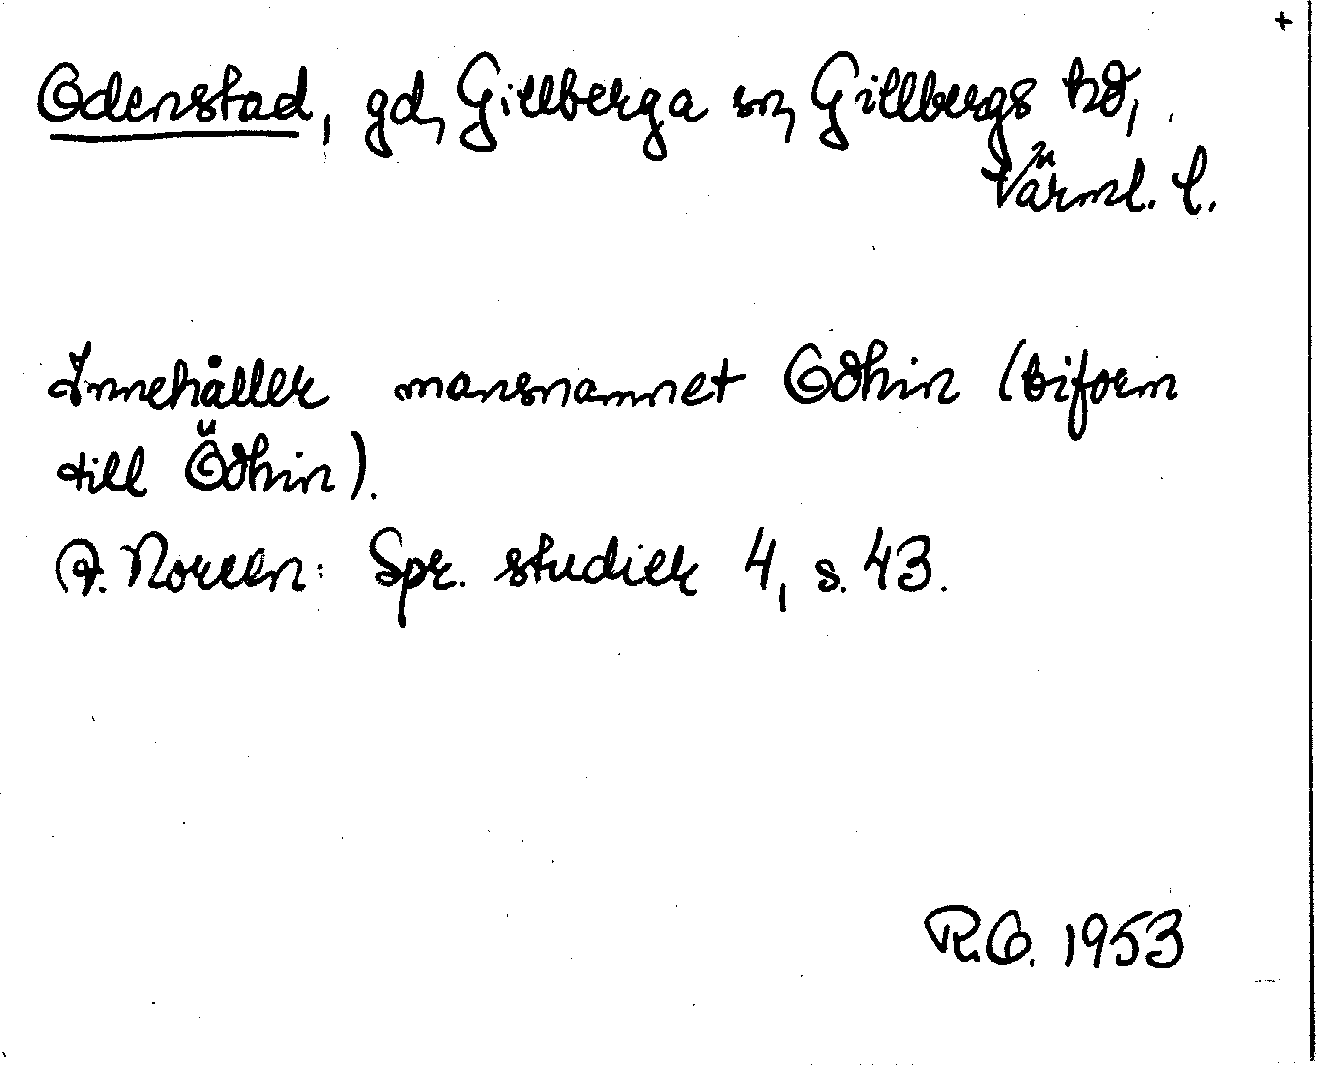 +
Odenstad, gd, Gillberga sn, Gillbergs hd,
Värml. l.
Innehåller mansnamnet Odhin (biform
till Ödhin).
A. Noreen: Spr. studier 4, s. 43.
R.O. 1953